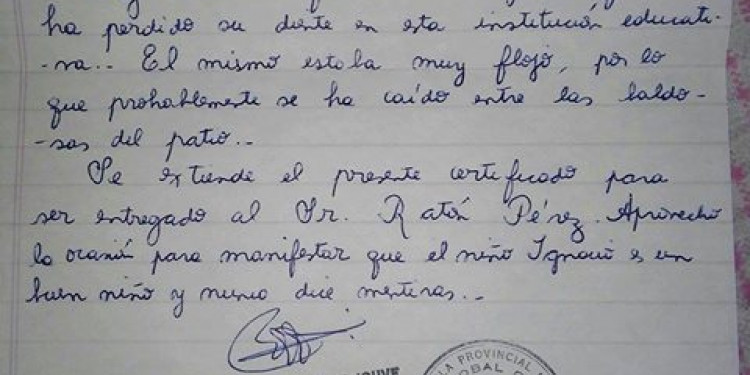 ha perdido su diente en esta institución educati-
-va.. El mismo estaba muy flojo, por lo
que probablemente se ha caído entre las baldo-
-sas del patio..
Se extiende el presente certificado para
ser entregado al Sr. Ratón Pérez. Aprovecho
la ocasión para manifestar que el niño Ignacio es un
buen niño y nunca dice mentiras..
LA PROVINCIAL